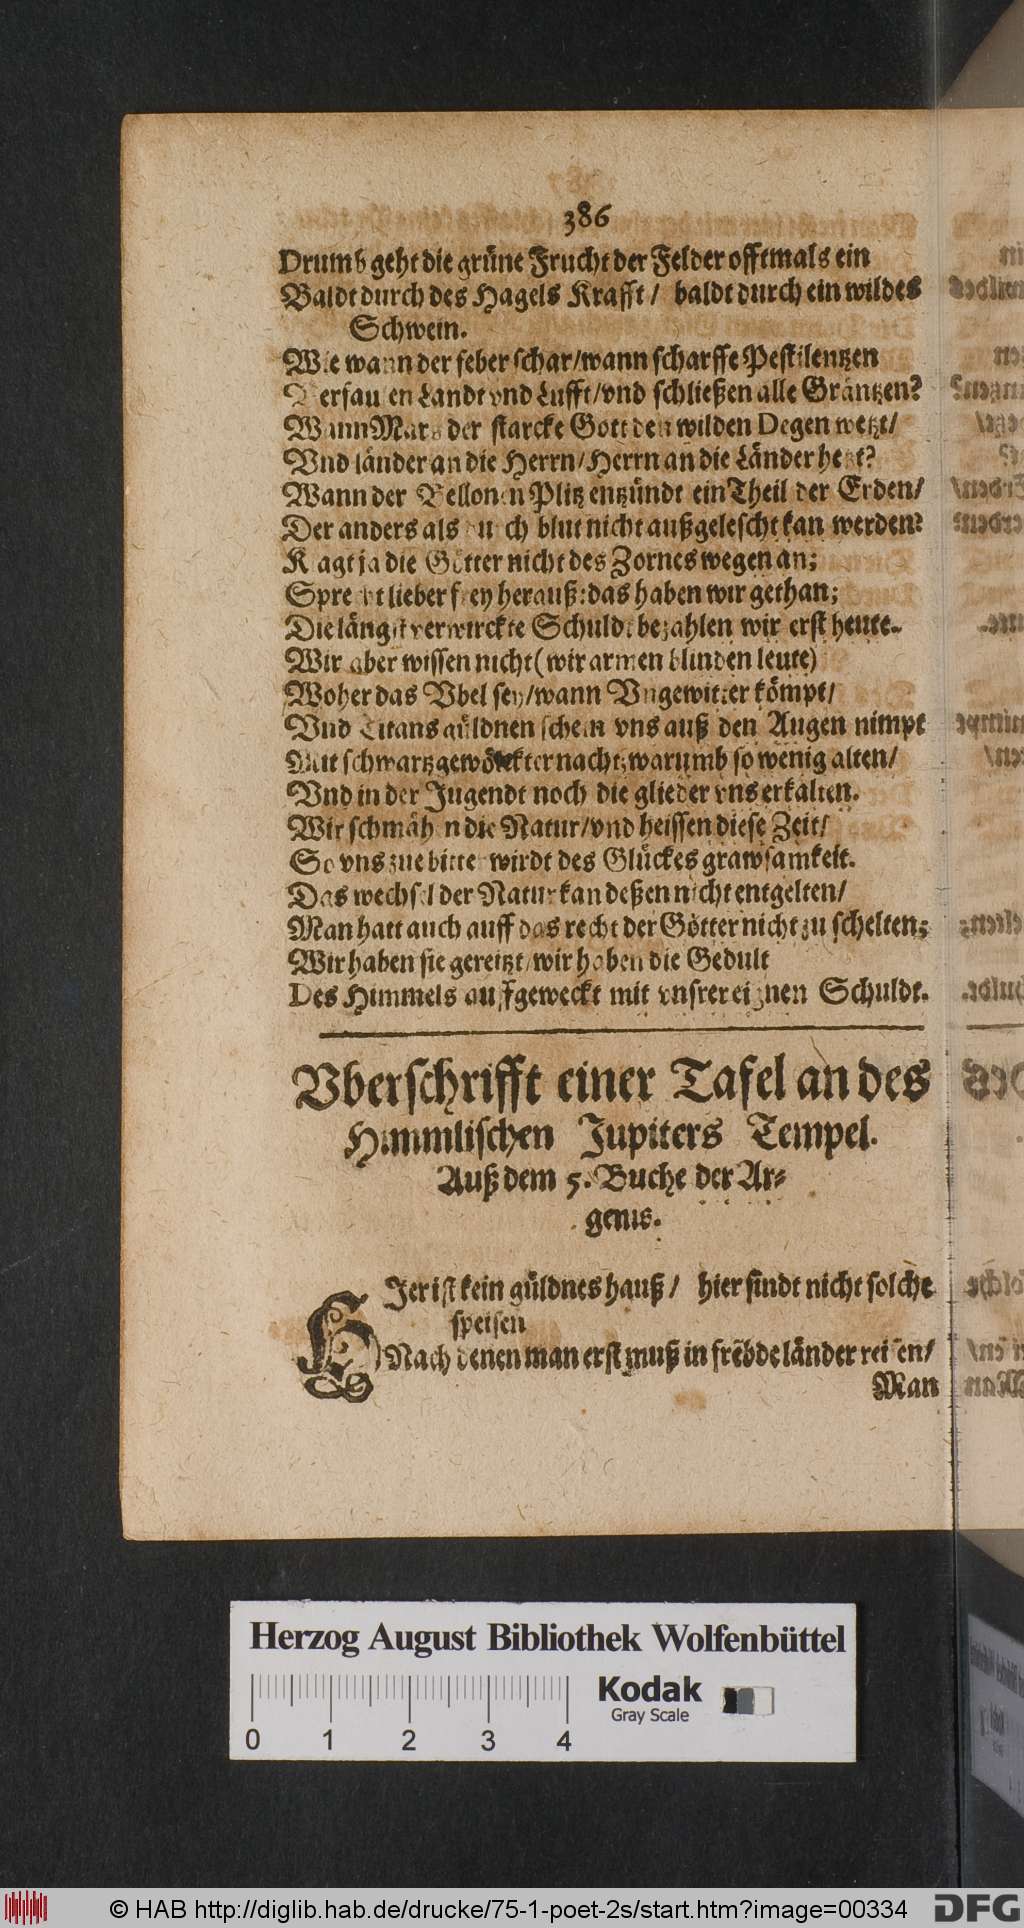 386
Drumb geht die grüne Frucht der Felder offtmals ein
Baldt durch des Hagels Krafft / baldt durch ein wildes
Schwein.
Wie wann der feber schar/wann scharffe Pestilentzen
Verfaulen Landt vnd Lufft/vnd schließen alle Gräntzen?
Wann Mars der starcke Gott den wilden Degen wetzt/
Vnd länder an die Herrn/Herrn an die Länder hetzt?
Wann der Bellonen Plitz entzündt ein Theil der Erden/
Der anders als durch blut nicht außgelescht kan werden?
Klagt ja die Götter nicht des Zornes wegen an;
Sprecht lieber frey herauß: das haben wir gethan;
Die längst verwirckte Schuldt bezahlen wir erst heute.
Wir aber wissen nicht (wir armen blinden leute)
Woher das Vbel sey/wann Vngewitter kömpt/
Vnd Titans güldnen schein vns auß den Augen nimpt
Mit schwartzgewölckter nacht; warumb so wenig alten/
Vnd in der Jugendt noch die glieder vns erkalten.
Wir schmähen die Natur/vnd heissen diese Zeit/
So vns zue bitter wirdt des Glückes grawsamkeit.
Das wechsel der Natur kan deßen nicht entgelten/
Man hatt auch auff das recht der Götter nicht zu schelten;
Wir haben sie gereitzt/wir haben die Gedult
Des Himmels auffgeweckt mit vnsrer eignen Schuldt.
Vberschrifft einer Tafel an des
Himmlischen Jupiters Tempel.
Auß dem 5. Buche der Ar-
genis.
HJer ist kein güldnes hauß / hier sindt nicht solche
speisen
Nach denen man erst muß in frembde länder reisen/
Man
Herzog August Bibliothek Wolfenbüttel
Kodak
Gray Scale
0 1 2 3 4
© HAB http://diglib.hab.de/drucke/75-1-poet-2s/start.htm?image=00334
DFG